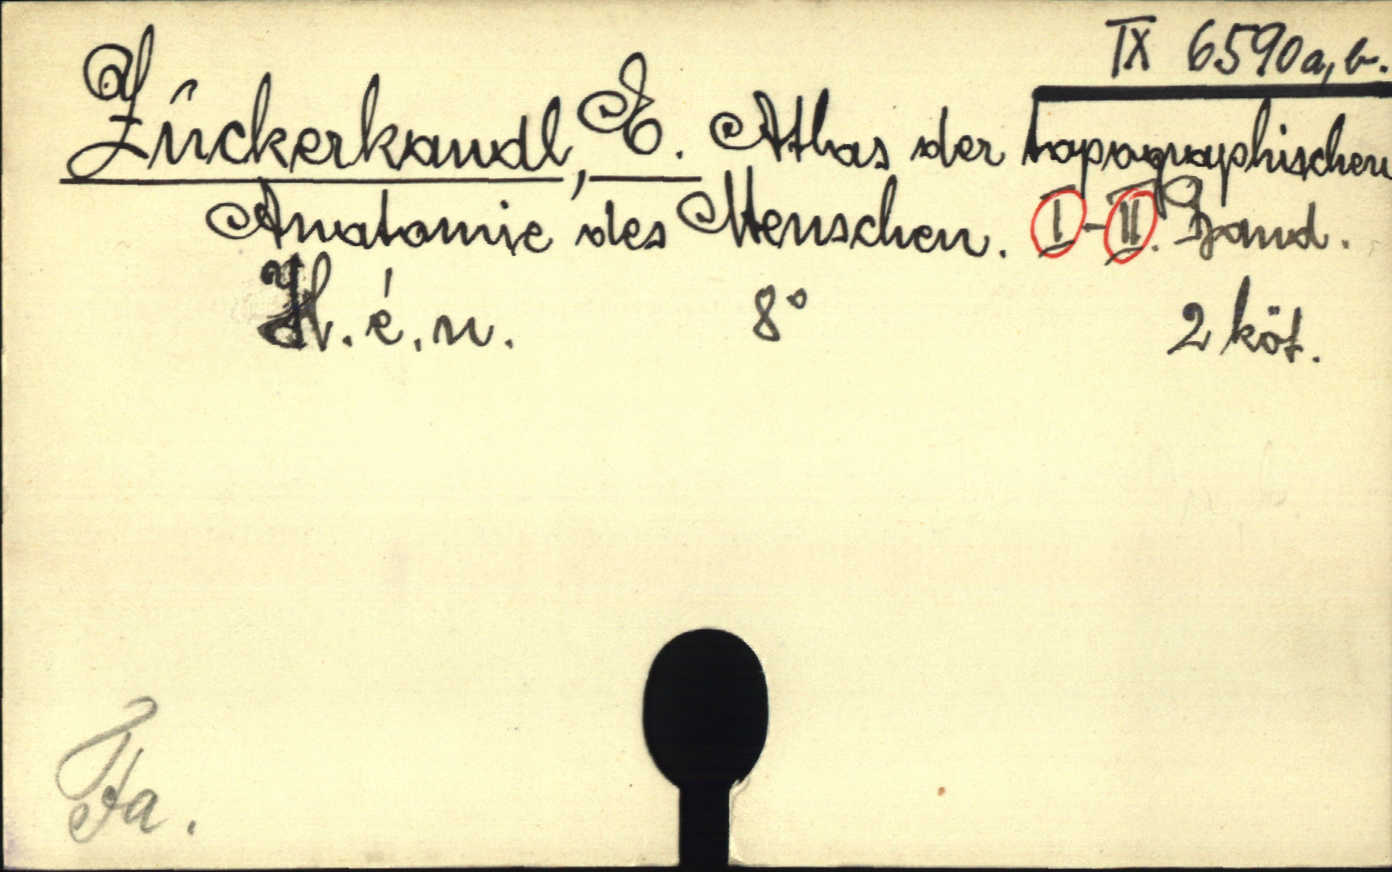 IX 6590a, b.
Zuckerkandl, E. Atlas der topographischen
Anatomie des Menschen. I-II. Band.
H. é. n. 8° 2 köt.